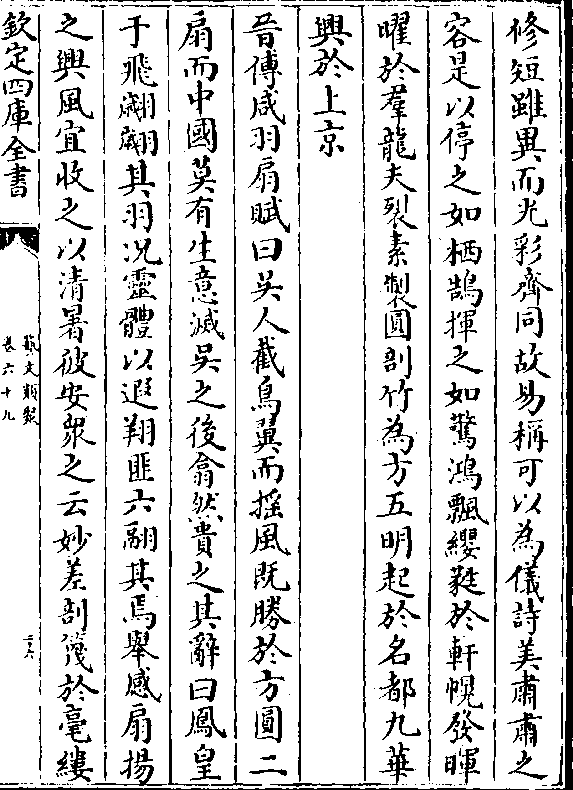 修短雖異而光彩齊同故易稱可以為儀詩美肅肅之
容是以停之如栖鵠揮之如驚鴻飄纓蕤於軒幌發暉
曜於羣龍夫裂素製圓剖竹為方五明起於名都九華
興於上京
晉傅咸羽扇賦曰吳人截鳥翼而揺風既勝於方圓二
扇而中國莫有生意滅吳之後翕然貴之其辭曰鳳皇
于飛翽翽其羽况靈體以遐翔匪六翮其焉舉感扇揚
之興風宜收之以清暑彼安衆之云妙差剖篾於毫縷
欽定四庫全書
藝文類聚
卷六十九
二十六